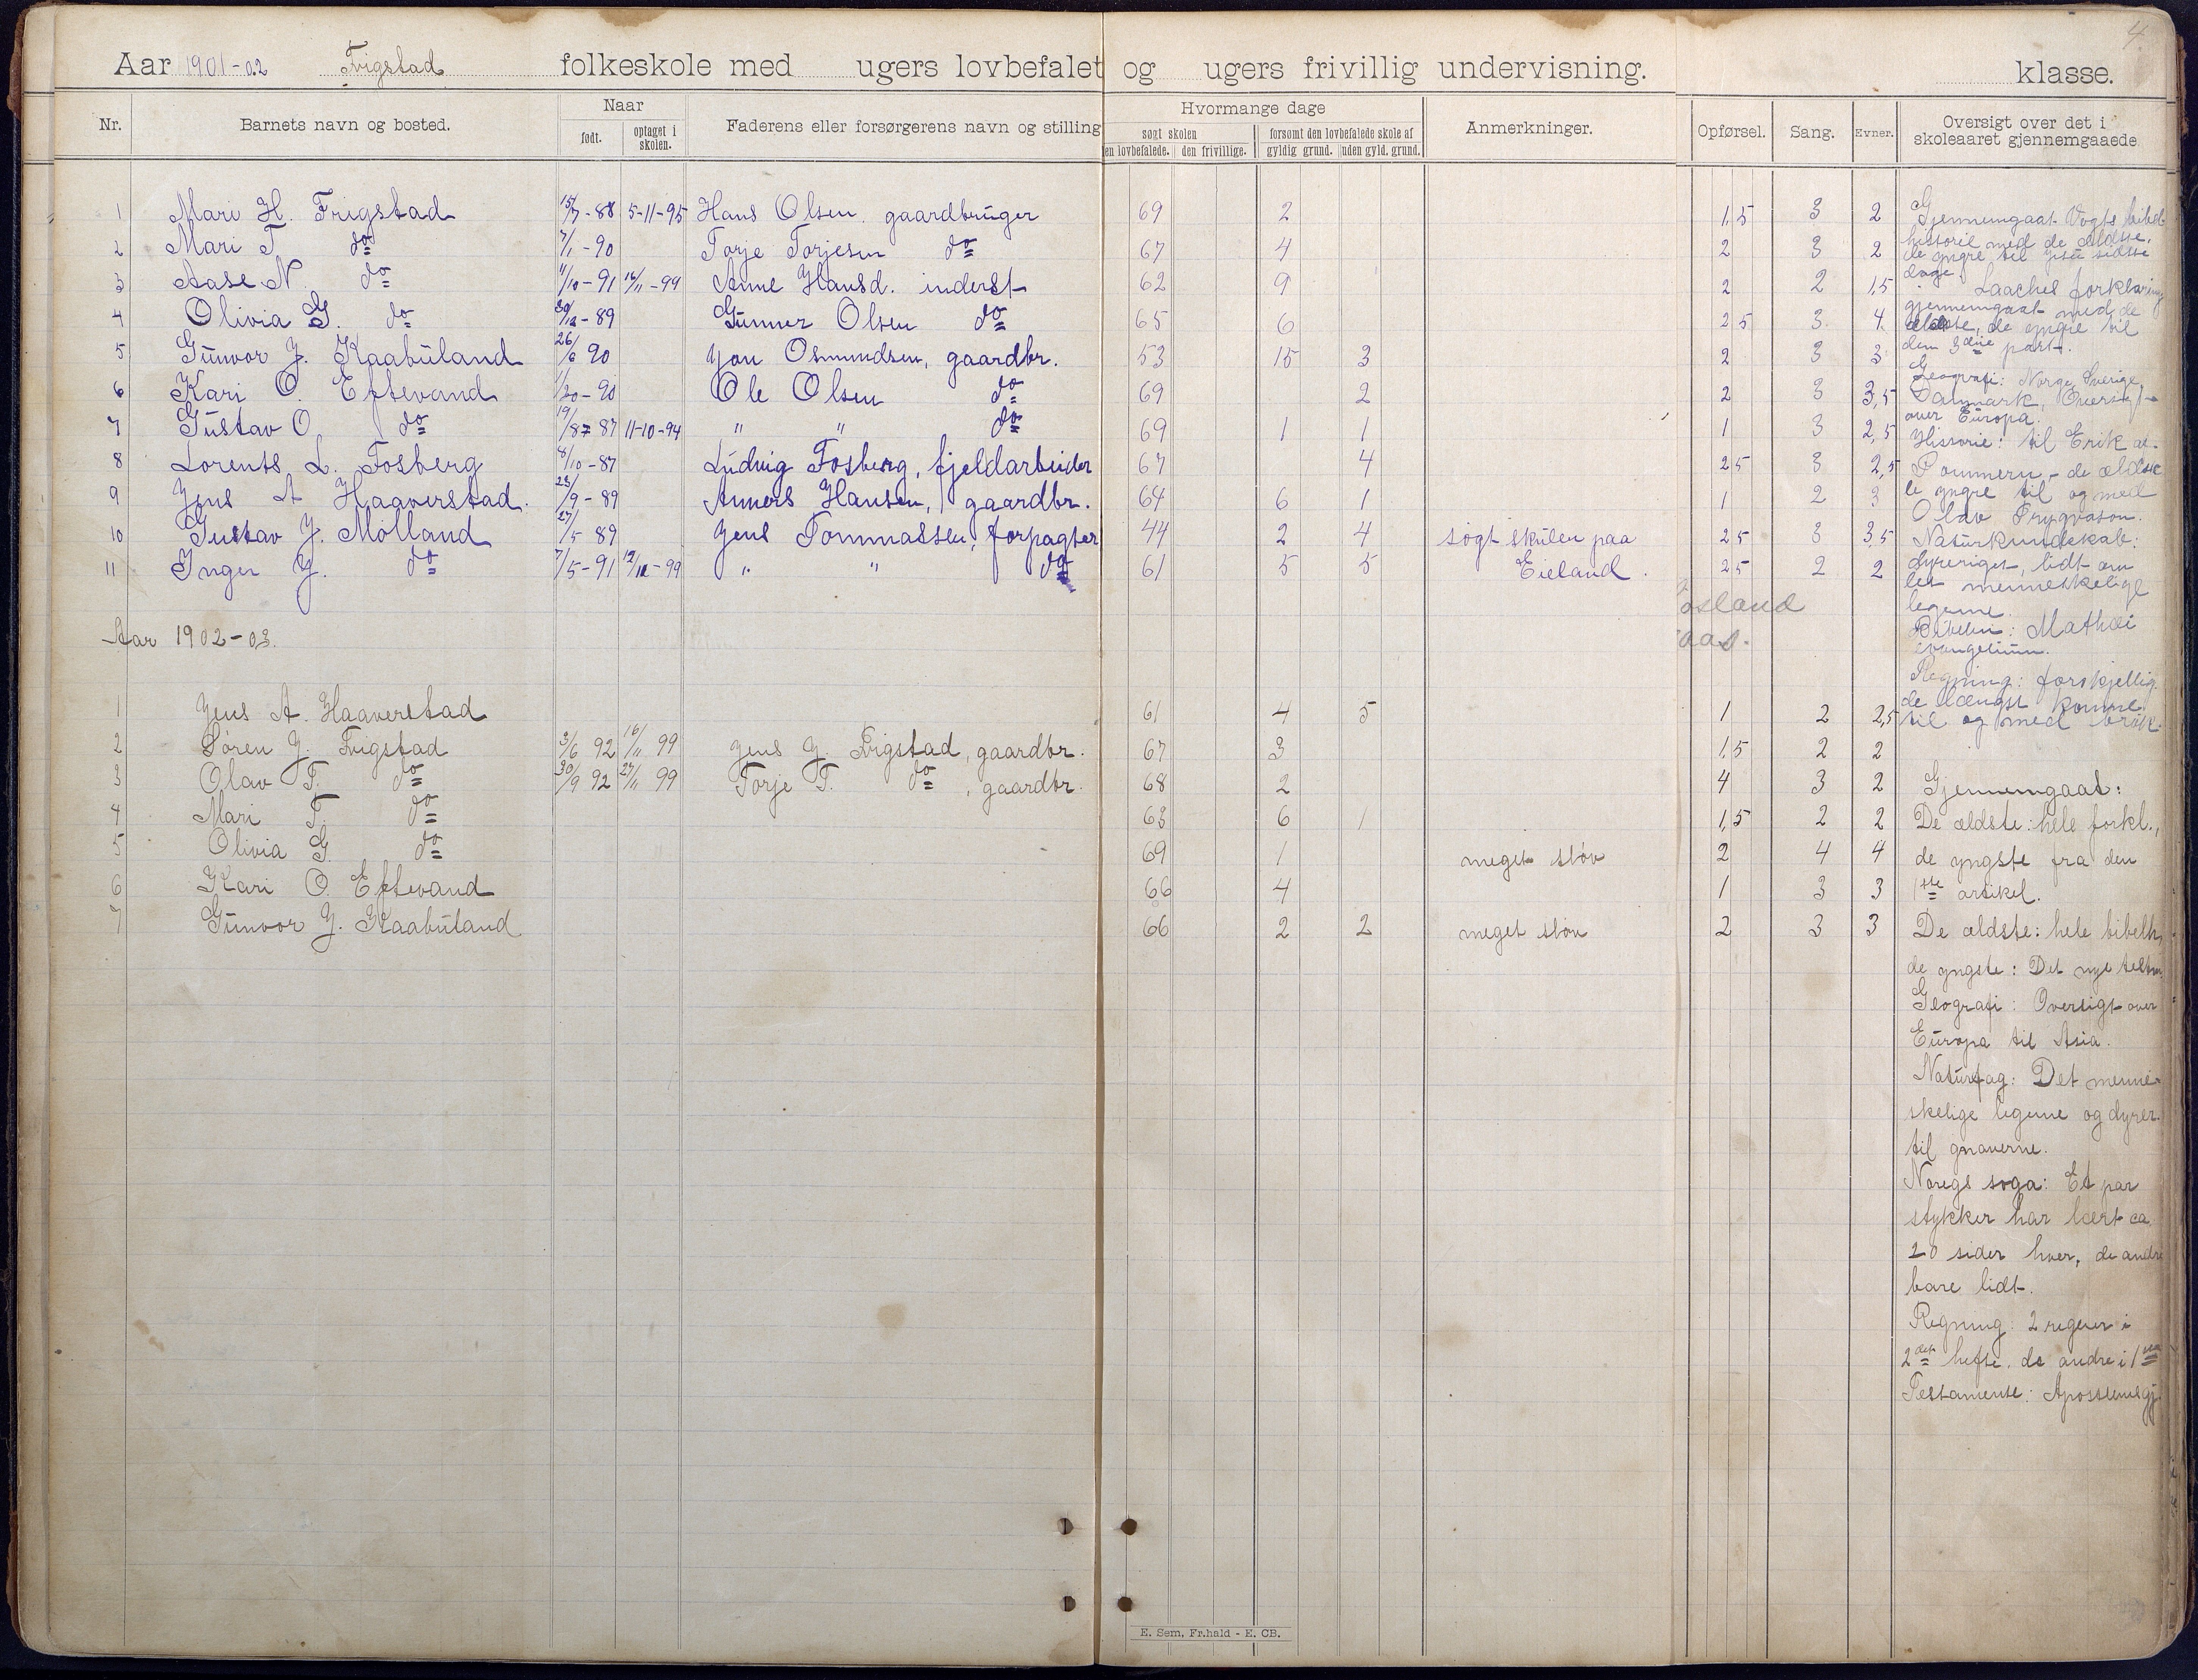 4.
Aar 1901-02 Frigstad folkeskole med ugers lovbefalet og ugers frivillig undervisning. klasse.
Nr. Barnets navn og bosted. Naar født. optaget i skolen. Faderens eller forsørgerens navn og stilling Hvormange dage søgt skolen en lovbefalede. den frivillige. forsømt den lovbefalede skole af gyldig grund. uden gyld. grund. Anmerkninger. Opførsel. Sang. Evner. Oversigt over det i skoleaaret gjennemgaaede
1 Mari H. Frigstad 15/7-88 5-11-95 Hans Olsen, gaardbruger 69 2 1,5 3 2
2 Mari T. do 7/1-90 Torje Torjesen do 67 4 2 3 2
3 Aase N. do 11/10-91 16/11-99 Anne Hansd. inderst 62 9 2 2 1,5
4 Olivia G. do 30/12-89 Gunner Olsen do 65 6 2 5 3 4
5 Gunvor J. Kaabuland 26/6 90 Jon Osmundsen, gaardbr. 53 15 3 2 3 3
6 Kari O. Eftevand 1/20-90 Ole Olsen do 69 2 2 3 3,5
7 Gustav O. do 19/8 87 11-10-94 " " do 69 1 1 1 3 2,5
8 Lorents L. Fosberg 8/10-87 Ludvig Fosberg, fjeldarbeider 67 4 2 5 3 2,5
9 Jens A Haaverstad. 23/9-89 Anners Hansen, gaardbr. 64 6 1 1 2 3
10 Gustav J. Mølland 27/5 89 Jens Tommassen, forpagter 44 2 4 søgt skulen paa 2 5 3 3,5
11 Inger J. do 7/5-91 12/11-99 " " do 61 5 5 Eieland. 2 5 2 2
Gjennemgaat Vogts bibel-
historie med de ældste,
de yngre til Jesu sidste
dage
Laaches forklaring
gjennemgaat med de
ældste, de yngre til
den 3die part.
Geografi: Norge, Sverige,
Danmark, Oversigt
over Europa.
Historie: til Erik af
Pommern - de ældste
de yngre til og med
Olav Trygvason.
Naturkundskab:
dyreriget, lidt om
det menneskelige
legeme.
Bibelen: Mathæi
evangelium.
Regning: forskjellig
de længst komne
til og med brøk.
osland
aas.
Aar 1902-03.
1 Jens A. Haaverstad 61 4 5 1 2 2,5
2 Søren J. Frigstad 3/6 92 16/11 99 Jens J. Frigstad, gaardbr. 67 3 1,5 2 2
3 Olav T. do 30/9 92 27/11 99 Torje T. do, gaardbr. 68 2 4 3 2
4 Mari T. do 63 6 1 1,5 2 2
5 Olivia G. do 69 1 meget sløv 2 4 4
6 Kari O. Eftevand 66 4 1 3 3
7 Gunvor J. Kaabuland 66 2 2 meget sløv 2 3 3
Gjennemgaat:
De ældste: hele forkl.,
de yngste fra den
1ste artikel.
De ældste: hele bibelh,
de yngste: Det nye testm.
Geografi: Oversigt over
Europa til Asia.
Naturfag: Det menne-
skelige legeme og dyrer.
til gnaverne.
Noregs soga: Et par
stykker har lært ca.
20 sider hver, de andre
bare lidt.
Regning: 2 regner i
2det hefte, de andre i 1ste
Testamente: Apostlenesgj.
E. Sem, Fr.hald - E. CB.